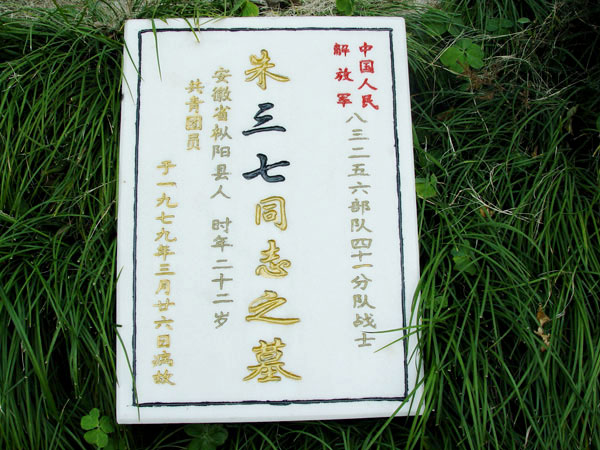 中国人民
解放军
八三二五六部队四十一分队战士
朱三七同志之墓
安徽省枞阳县人 时年二十二岁
共青团员
于一九七九年三月廿六日病故